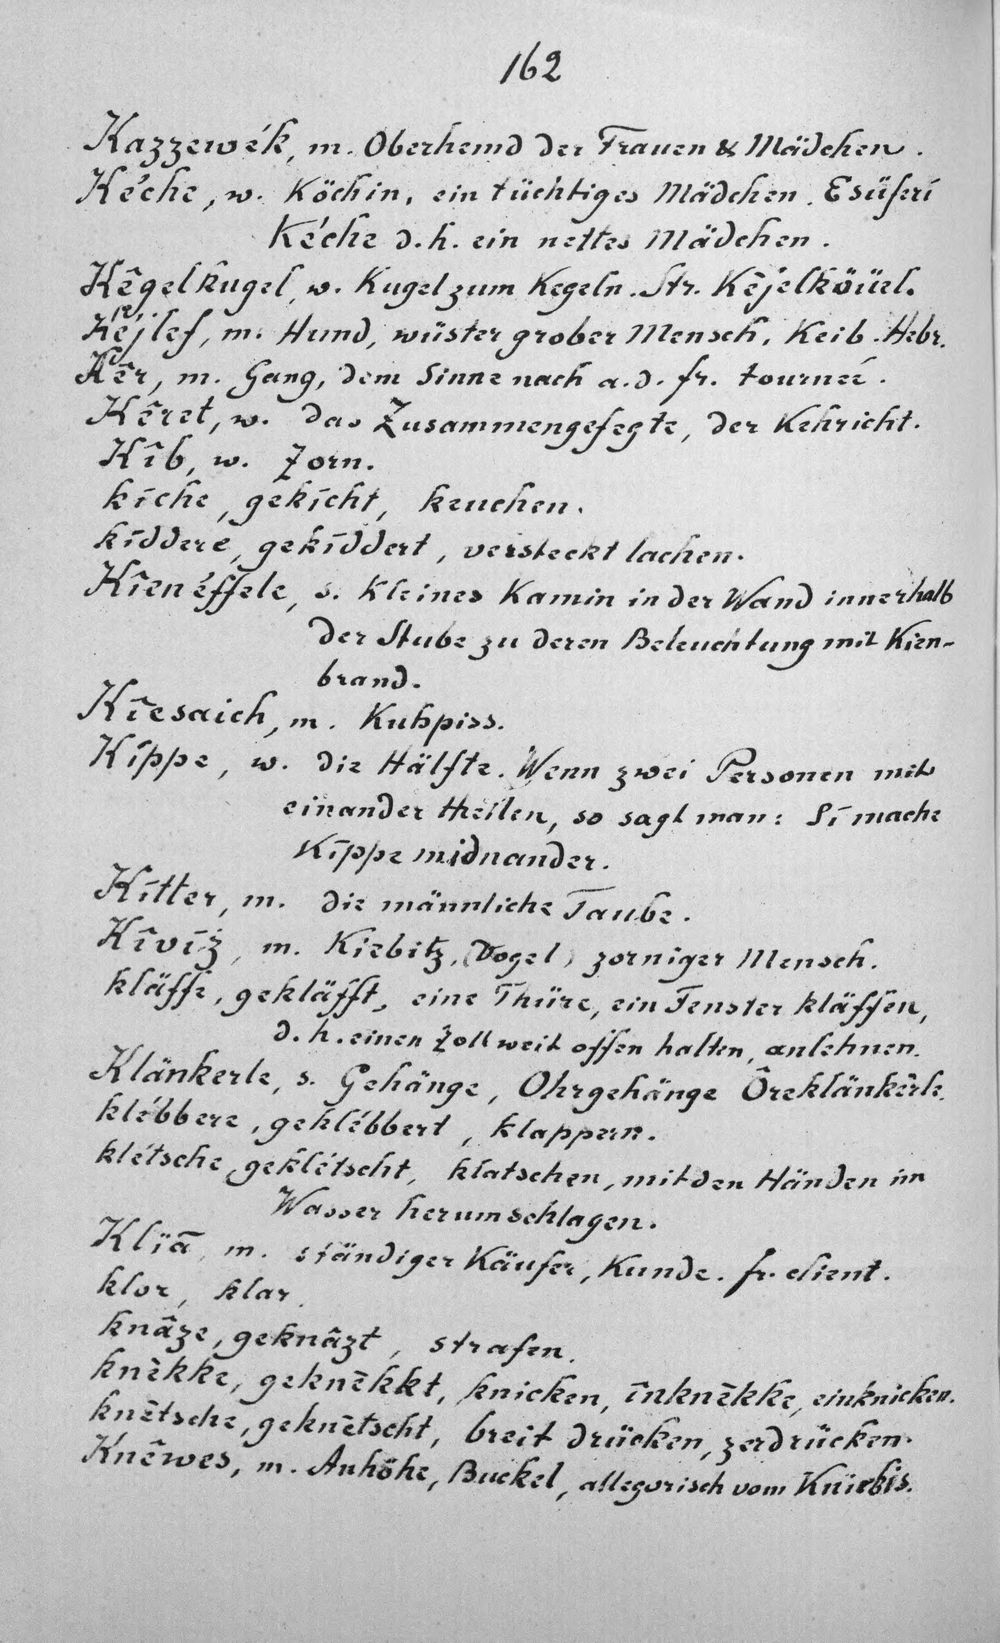 162
Kazzewék, m. Oberhemd der Frauen & Mädchen.
Kéche, w. Köchin, ein tüchtiges Mädchen. Esüferi
Kéche d.h. ein nettes Mädchen.
Kêgelkugel, w. Kugel zum Kegeln. Str. Kêjelköüel.
Kêjlef, m. Hund, wüster grober Mensch, Keib. Hebr.
Kêr, m. Gang, dem Sinne nach a.d. fr. tournée.
Kêret, w. das Zusammengefegte, der Kehricht.
Kîb, w. Zorn.
kiche, gekicht, keuchen.
kiddere, gekiddert, versteckt lachen.
Kîenéffele, s. Kleines Kamin in der Wand innerhalb
der Stube zu deren Beleuchtung mit Kien-
brand.
Kîesaich, m. Kuhpiss.
Kippe, w. die Hälfte. Wenn zwei Personen mit
einander theilen, so sagt man: Si mache
Kippe midnander.
Kitter, m. die männliche Taube.
Kîviz, m. Kiebitz, (Vogel) zorniger Mensch.
kläffe, gekläfft, eine Thüre, ein Fenster kläffen,
d.h. einen Zoll weit offen halten, anlehnen.
Klänkerle, s. Gehänge, Ohrgehänge Ôreklänkerle.
klébbere, geklébbert, klappern.
klétsche, geklétscht, klatschen, mit den Händen im
Wasser herumschlagen.
Klïā, m. ständiger Käufer, Kunde. fr. client.
klor, klar.
knâze, geknâzt, strafen.
knēkke, geknēkkt, knicken, īnknēkke, einknicken.
knētsche, geknētscht, breit drücken, zerdrücken.
Knêwes, m. Anhöhe, Buckel, allegorisch vom Kniebis.